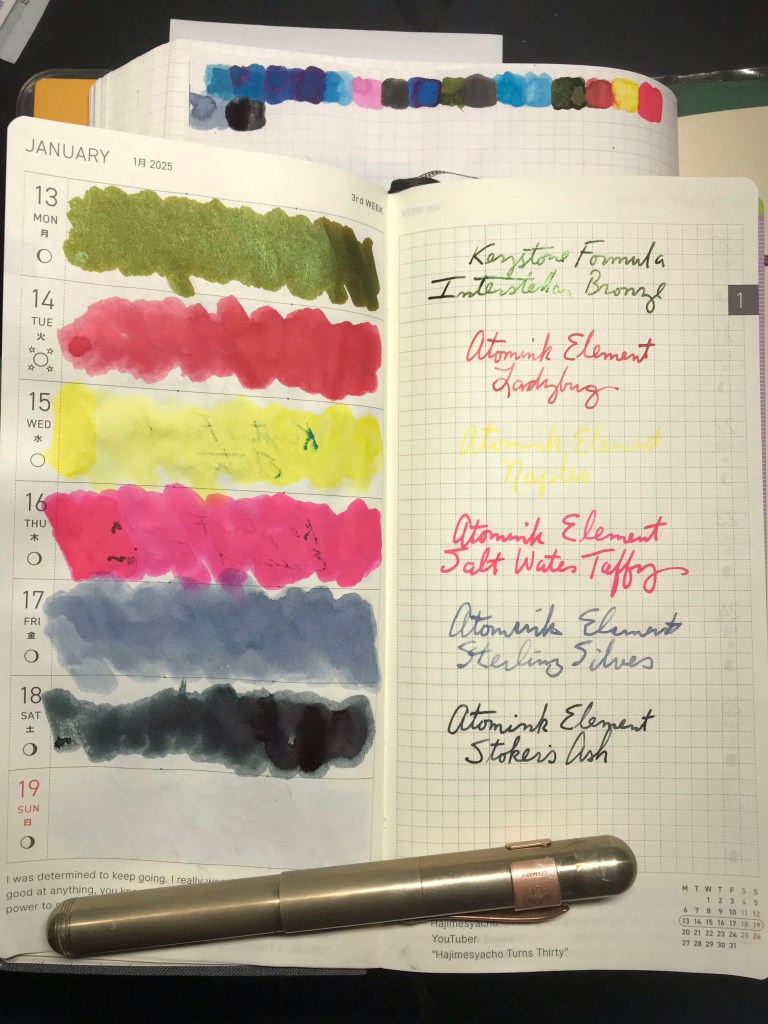 JANUARY 1月 2025
3rd WEEK
13
MON
月
14
TUE
火
15
WED
水
16
THU
木
17
FRI
金
18
SAT
土
19
SUN
日
I was determined to keep going. I really
good at anything, you
power to
Keystone Formula
Interstellar Bronze
1
Atomink Element
Ladybug
Atomink Element
Naples
Atomink Element
Salt Water Taffy
Atomink Element
Sterling Silver
Atomink Element
Stoker's Ash
GERMANY
Hajimesyacho
YouTuber
"Hajimesyacho Turns Thirty"
M T W T F S S
1 2 3 4 5
6 7 8 9 10 11 12
13 14 15 16 17 18 19
20 21 22 23 24 25 26
27 28 29 30 31